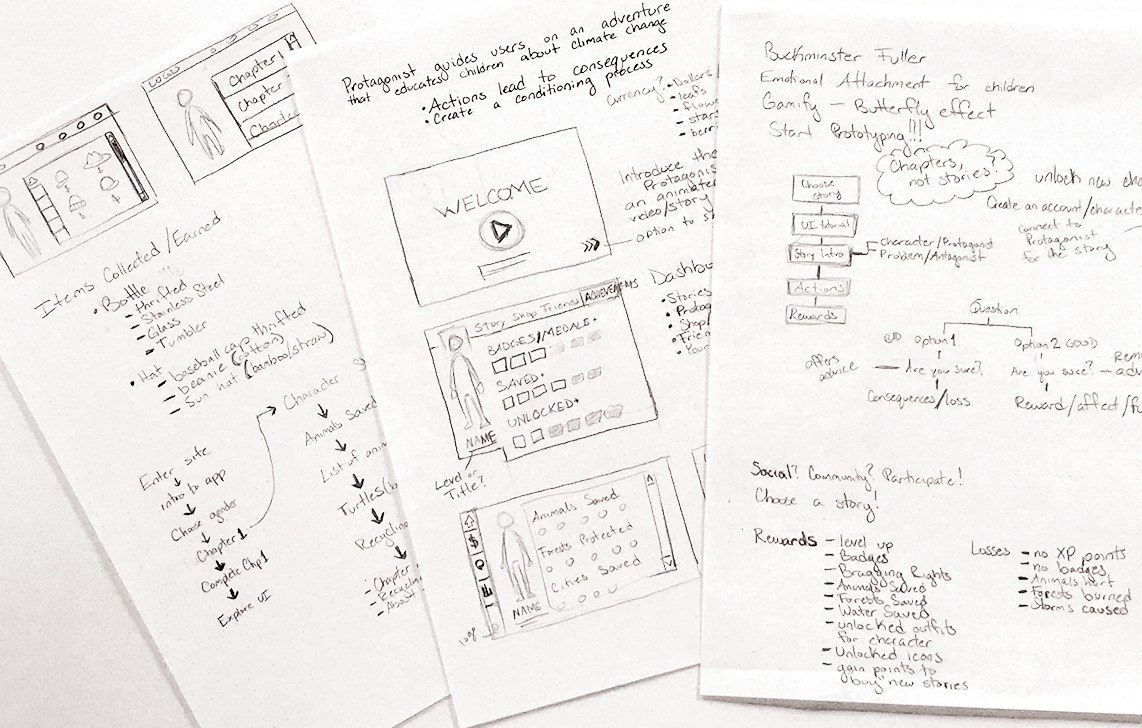 LOGO
Chapter 1
Chapter
Chapter
Items Collected/Earned
• Bottle
- thrifted
- Stainless Steel
- Glass
- Tumbler
• Hat
- baseball cap, thrifted
- beanie (cotton)
- Sun hat (bamboo/straw)
Enter site
Intro to app
Choose gender
Chapter 1
Complete Chp 1
Explore UI
Character
Animals Saved
List of anim
Turtles
Recycling
- Chapter
Protagonist guides users on an adventure
that educates children about climate change
• Actions lead to consequences
• Create a conditioning process
Currency? • Dollars
- leafs
- flow
- star
- berr
WELCOME
Introduce the
Protagonis
an animated
video/story
option to s
Dashbo
• Stories
• Protag
• Shop/
• Frien
• Your
Story Shop Friends ACHIEVEMENTS
BADGES/MEDALS+
SAVED+
UNLOCKED+
NAME
Level or
Title?
Animals Saved
Forests Protected
Cities Saved
$
NAME
logo
Buckminster Fuller
Emotional Attachment for children
Gamify - Butterfly effect
Start Prototyping!!!
Chapters,
not stories?
unlock new cha
Create an account/character
connect to
Protagonist
for the story
Choose
story
UI tutorial
Story Intro
Character/Protagonist
Problem/Antagonist
Actions
Rewards
Question
Option 1
Option 2 GOOD
offers
advice
- Are you sure?
Are you sure? -
Rem
adv
Consequences/loss
Reward/affect/fu
Social? Community? Participate!
Choose a story!
Rewards - level up
- Badges
- Bragging Rights
- Animals Saved
- Forests Saved
- Water Saved
- unlocked outfits
for character
- Unlocked icons
- gain points to
"buy" new stories
Losses - no XP points
- no badges
- Animals hurt
- Forests burned
- Storms caused